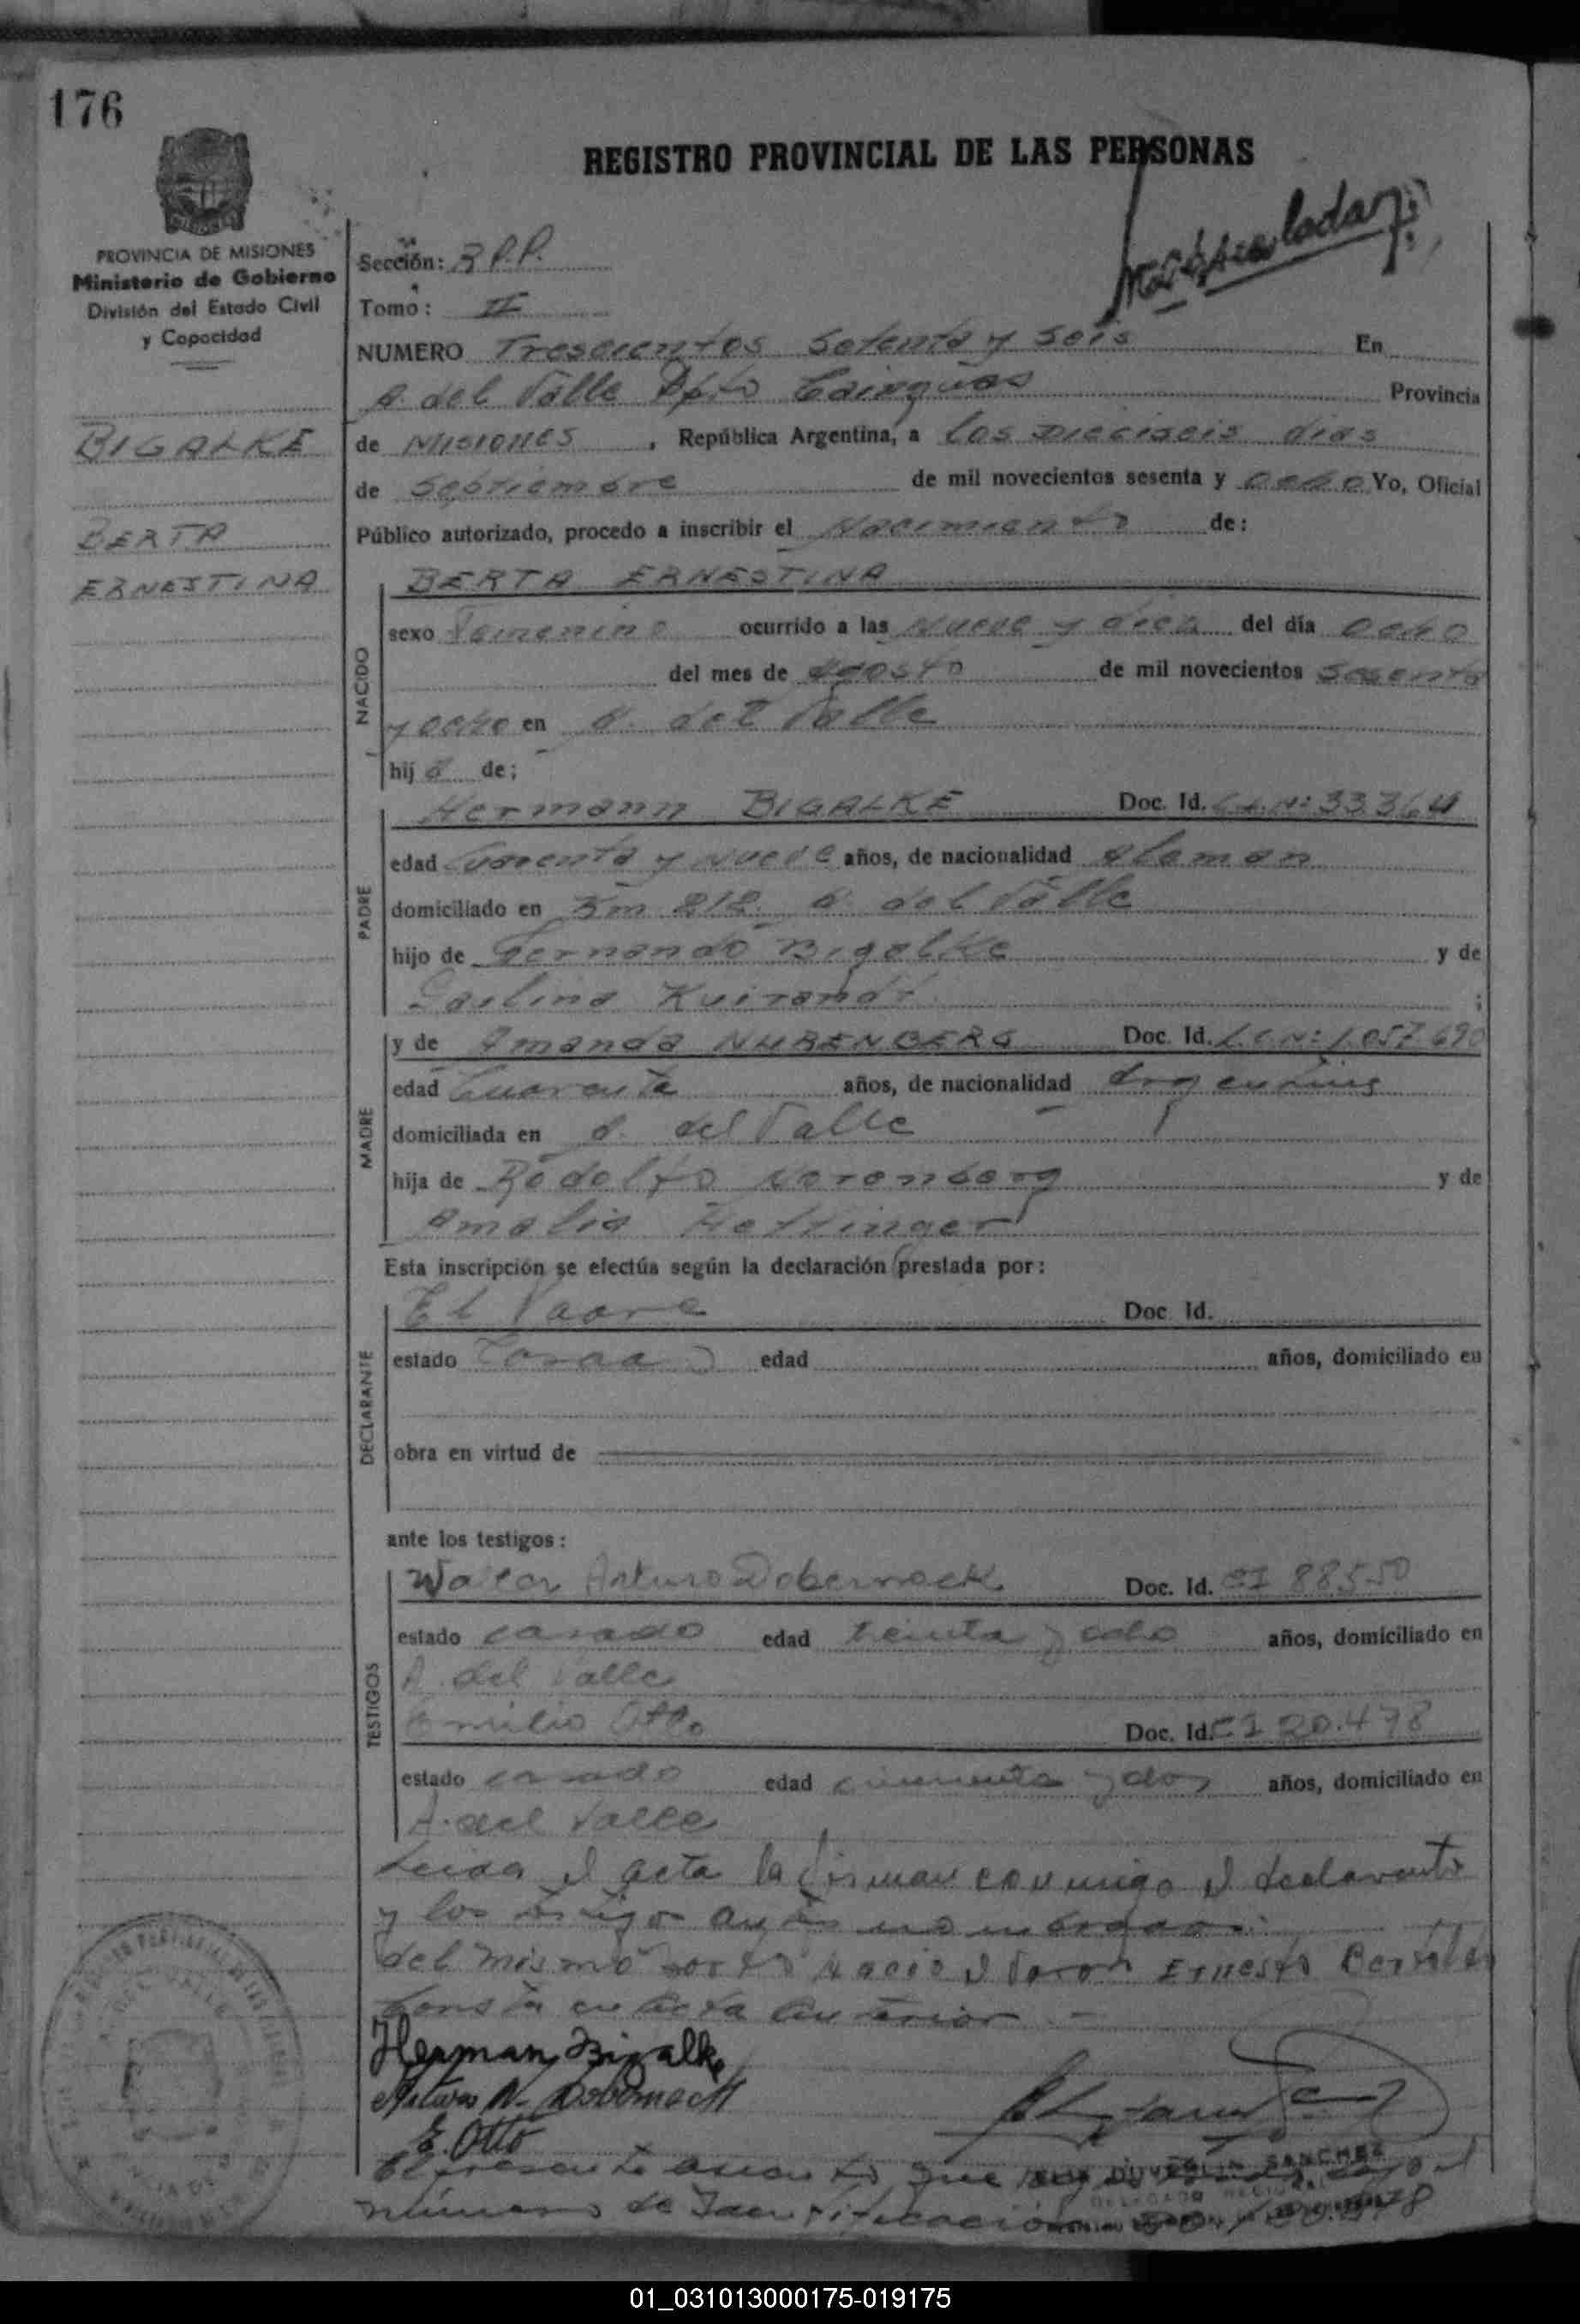 176
REGISTRO PROVINCIAL DE LAS PERSONAS
PROVINCIA DE MISIONES
Ministerio de Gobierno
División del Estado Civil
y Capacidad
Sección: R.P.P.
Tomo: II
NUMERO Trescientos Setenta y Seis En
A. del Valle Dpto Cainguas Provincia
de MISIONES, República Argentina, a los Dieciseis dias
de Septiembre de mil novecientos sesenta y ocho Yo, Oficial
Público autorizado, procedo a inscribir el Nacimiento de:
BIGALKE
BERTA
ERNESTINA
NACIDO
BERTA ERNESTINA
sexo Femenino ocurrido a las Nueve y diez del día ocho
del mes de Agosto de mil novecientos sesenta
y ocho en A. del Valle
hija de;
PADRE
Hermann BIGALKE Doc. Id. Nº 33364
edad Cuarenta y Nueve años, de nacionalidad aleman
domiciliado en Km 212 A. del Valle
hijo de Fernando Bigalke y de
;
MADRE
y de Amanda NURENBERG Doc. Id. L.C.Nº 1.057.690
edad Cuarenta años, de nacionalidad Argentina
domiciliada en A. del Valle
hija de Rodolfo Norenberg y de
Amalia Hettinger
Esta inscripción se efectúa según la declaración prestada por:
DECLARANTE
El Padre Doc. Id.
estado Casado edad años, domiciliado en
obra en virtud de
ante los testigos:
TESTIGOS
Arturo Dobernack Doc. Id. CI 88550
estado casado edad treinta y ocho años, domiciliado en
A. del Valle
Emilio Otto Doc. Id. CI 20.478
estado casado edad cincuenta y dos años, domiciliado en
A. del Valle
Leida el acta la firman conmigo el declarante
y los testigos antes nombrados.
del mismo parto Nacio el Varon Ernesto
Consta en acta anterior -
Herman Bigalke
Arturo W. Dobernack
E. Otto
El presente asiento que
SANCHEZ
número de Identificación
01_031013000175-019175